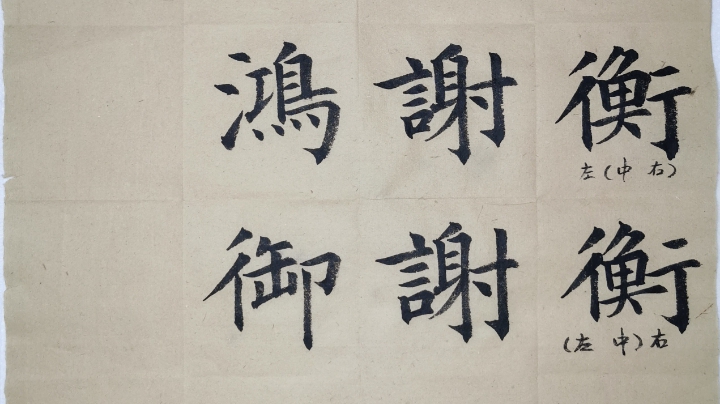 衡
左(中 右)
衡
(左 中)右
謝謝
鴻御